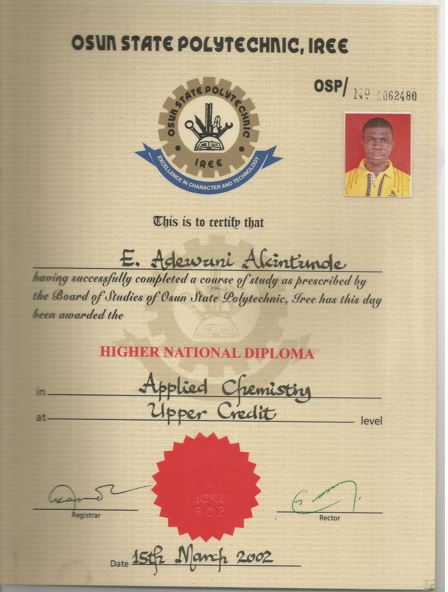 OSUN STATE POLYTECHNIC, IREE
OSP/ No 0062480
OSUN STATE POLYTECHNIC
IREE
EXCELLENCE IN CHARACTER AND TECHNOLOGY
This is to certify that
E. Adewuni Akintunde
having successfully completed a course of study as prescribed by
the Board of Studies of Osun State Polytechnic, Iree has this day
been awarded the
HIGHER NATIONAL DIPLOMA
in Applied Chemistry
at Upper Credit level
Registrar
Rector
Date 15th March 2002